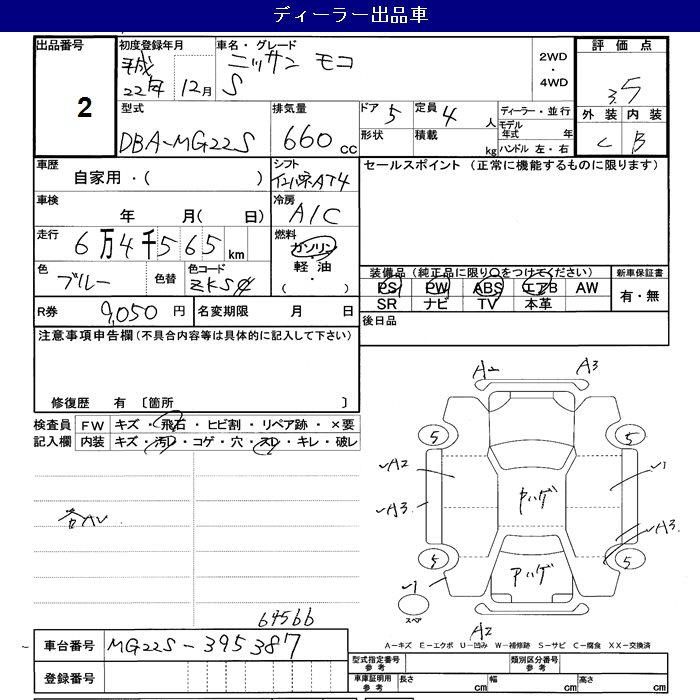 ディーラー出品車
出品番号 2
初度登録年月 平成22年 12月
車名・グレード ニッサン モコ
S
2WD・4WD
評価点 3.5
外装 内装
C B
型式 DBA-MG22S
排気量 660 cc
ドア 5 定員 4 人
形状 積載 kg
ディーラー・並行
モデル年式 年
ハンドル 左・右
車歴 自家用・( )
シフト AT4
セールスポイント (正常に機能するものに限ります)
車検 年 月( 日)
冷房 A/C
走行 6万4千565 km
燃料 ガソリン・軽油・( )
色 ブルー 色替 色コード ZKS
装備品(純正品に限り○をつけてください) 新車保証書
PS PW ABS エアB AW 有・無
SR ナビ TV 本革
R券 9,050 円 名変期限 月 日
後日品
注意事項申告欄(不具合内容等は具体的に記入して下さい)
修復歴 有 〔箇所 〕
検査員記入欄
FW キズ・飛石・ヒビ割・リペア跡・×要
内装 キズ・汚レ・コゲ・穴・スレ・キレ・破レ
A2 A3
5 5
A2 1
A3 ヤハゲ
A3
5 5
アハゲ
1
スペア
各AU
64566
A2
A-キズ E-エクボ U-凹み W-補修跡 S-サビ C-腐食 XX-交換済
車台番号 MG22S-395387
型式指定番号 参考 類別区分番号 参考
登録番号
車庫証明用 参考 長さ cm 幅 cm 高さ cm